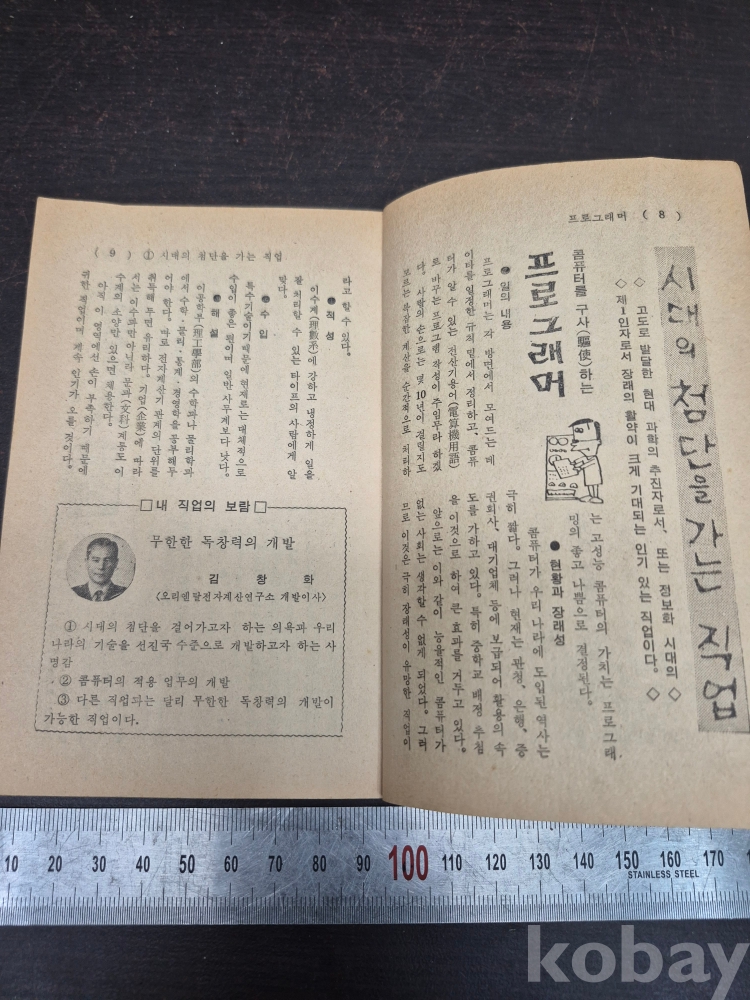 프로그래머 ( 8 )
시대의 첨단을 가는 직업
◇ 고도로 발달한 현대 과학의 추진자로서, 또는 정보화 시대의 ◇
◇ 제1인자로서 장래의 활약이 크게 기대되는 인기 있는 직업이다. ◇
콤퓨터를 구사(驅使)하는
프로그래머
● 일의 내용
프로그래머는 각 방면에서 모여드는 데
이타를 일정한 규칙 밑에서 정리하고, 콤퓨
터가 알 수 있는 전산기용어(電算機用語)
로 바꾸는 프로그램 작성이 주임무라 하겠
다. 사람의 손으로는 몇 10년이 걸릴지도
모르는 복잡한 계산을 순간적으로 처리하
는 고성능 콤퓨터의 가치는 프로그래
밍의 좋고 나쁨으로 결정된다.
● 현황과 장래성
콤퓨터가 우리 나라에 도입된 역사는
극히 짧다. 그러나 현재는 관청, 은행, 증
권회사, 대기업체 등에 보급되어 활용의 속
도를 가하고 있다. 특히 중학교 배정 추첨
을 이것으로 하여 큰 효과를 거두고 있다.
앞으로는 이와 같이 능률적인 콤퓨터가
없는 사회는 생각할 수 없게 되었다. 그러
므로 이것은 극히 장래성이 유망한 직업이
( 9 ) ① 시대의 첨단을 가는 직업
라고 할 수 있다.
● 적성
이수계(理數系)에 강하고 냉정하게 일을
잘 처리할 수 있는 타이프의 사람에게 알
맞다.
● 수입
특수기술이기때문에 현재로는 대체적으로
수입이 좋은 편이며 일반 사무계보다 낫다.
● 해설
이공학부(理工學部)의 수학과나 물리학과
에서 수학·물리·통계·경영학을 공부해 두
어야 한다. 따로 전자계산기 관계의 단위를
취득해 두면 유리하다. 기업(企業)에 따라
서는 이수과만 아니라 문과(文科)계통도 이
수계의 소양만 있으면 채용한다.
아직 이 영역에선 손이 부족하기 때문에
귀한 직업이며 계속 인기가 오를 것이다.
□ 내 직업의 보람 □
무한한 독창력의 개발
김 창 화
<오리엔탈전자계산연구소 개발이사>
① 시대의 첨단을 걸어가고자 하는 의욕과 우리
나라의 기술을 선진국 수준으로 개발하고자 하는 사
명감
② 콤퓨터의 적용 업무의 개발
③ 다른 직업과는 달리 무한한 독창력의 개발이
가능한 직업이다.
10 20 30 40 50 60 70 80 90 100 110 120 130 140 150 160 170
STAINLESS STEEL
kobay